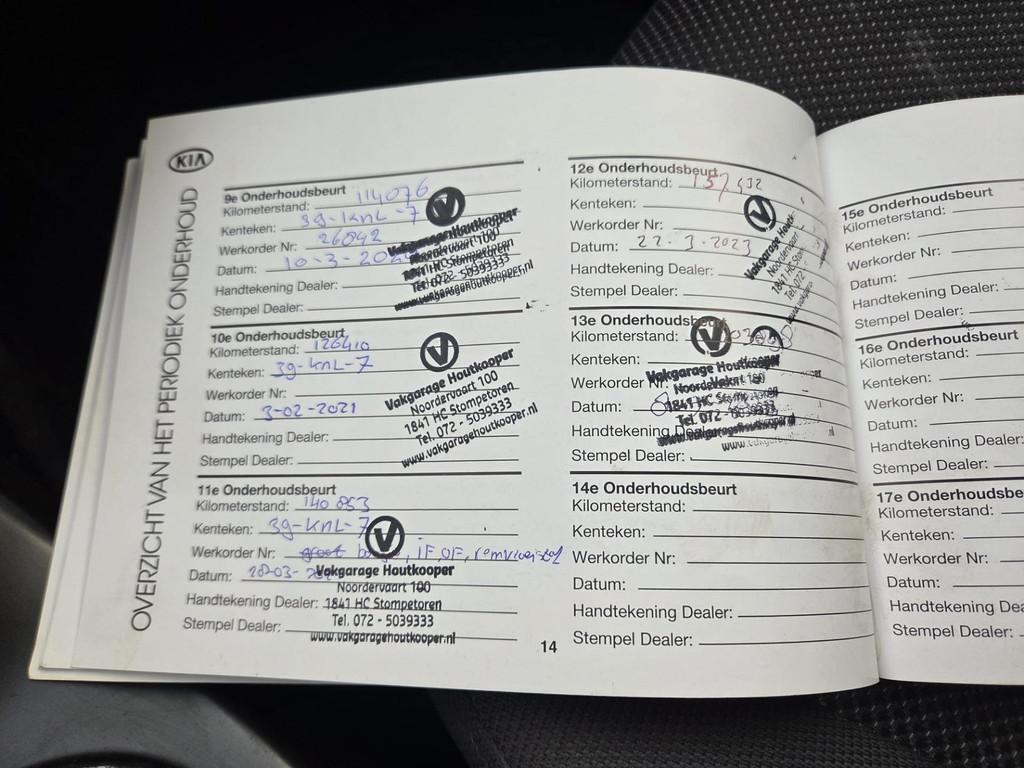 KIA
OVERZICHT VAN HET PERIODIEK ONDERHOUD
9e Onderhoudsbeurt
Kilometerstand: 114076
Kenteken: 39-KNL-7
Werkorder Nr: 26842
Datum: 10-3-
Handtekening Dealer:
Stempel Dealer:
Vakgarage Houtkooper
Noordervaart 100
1841 HC Stompetoren
Tel. 072 - 5039333
www.vakgaragehoutkooper.nl
10e Onderhoudsbeurt
Kilometerstand: 126410
Kenteken: 39-KNL-7
Werkorder Nr:
Datum: 3-02-2021
Handtekening Dealer:
Stempel Dealer:
Vakgarage Houtkooper
Noordervaart 100
1841 HC Stompetoren
Tel. 072 - 5039333
www.vakgaragehoutkooper.nl
11e Onderhoudsbeurt
Kilometerstand: 140 853
Kenteken: 39-KNL-7
Werkorder Nr: groot
Datum:
Handtekening Dealer:
Stempel Dealer:
Vakgarage Houtkooper
Noordervaart 100
1841 HC Stompetoren
Tel. 072 - 5039333
www.vakgaragehoutkooper.nl
14
12e Onderhoudsbeurt
Kilometerstand: 157432
Kenteken:
Werkorder Nr:
Datum: 22-3-2023
Handtekening Dealer:
Stempel Dealer:
Vakgarage
Noordervaart
1841 HC
Tel. 072
13e Onderhoudsbeurt
Kilometerstand:
Kenteken:
Werkorder Nr:
Datum:
Handtekening Dealer:
Stempel Dealer:
Vakgarage Houtkooper
Noordervaart 100
1841 HC Stompetoren
Tel. 072 - 5039333
14e Onderhoudsbeurt
Kilometerstand:
Kenteken:
Werkorder Nr:
Datum:
Handtekening Dealer:
Stempel Dealer:
15e Onderhoudsbeurt
Kilometerstand:
Kenteken:
Werkorder Nr:
Datum:
Handtekening Dealer:
Stempel Dealer:
16e Onderhoudsbeurt
Kilometerstand:
Kenteken:
Werkorder Nr:
Datum:
Handtekening Dealer:
Stempel Dealer:
17e Onderhoudsbe
Kilometerstand:
Kenteken:
Werkorder Nr:
Datum:
Handtekening Deale
Stempel Dealer: